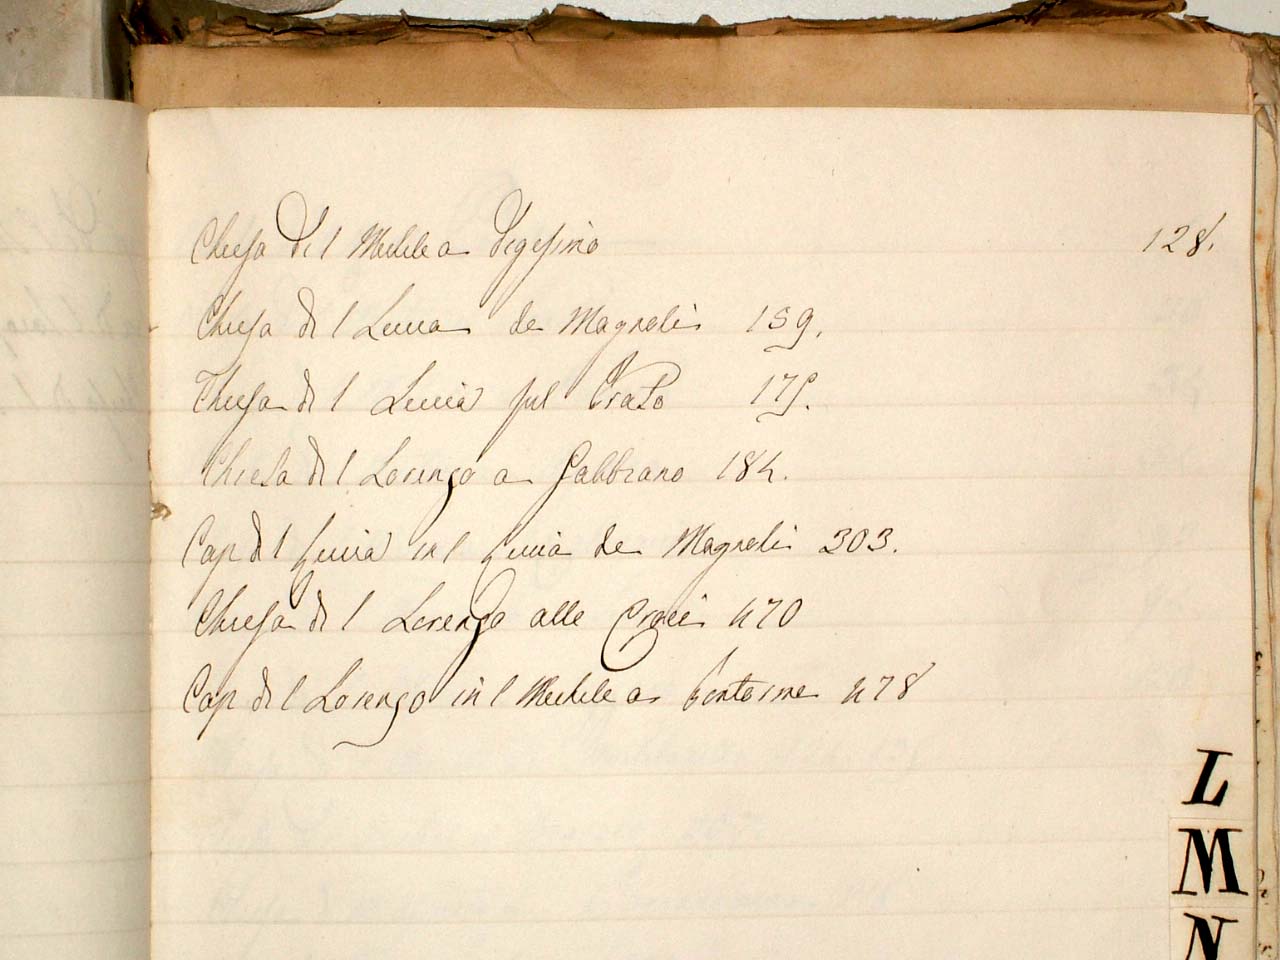 Chiesa di S Michele a 128.
Chiesa di S Lucia de Magnoli 159.
Chiesa di S Lucia sul Prato 175.
Chiesa di S Lorenzo a Gabbiano 184.
Cap di S Lucia in S Lucia de Magnoli 303.
Chiesa di S Lorenzo alle Croci 470
Cap di S Lorenzo in S Michele a Pontorme 478
L
M
N